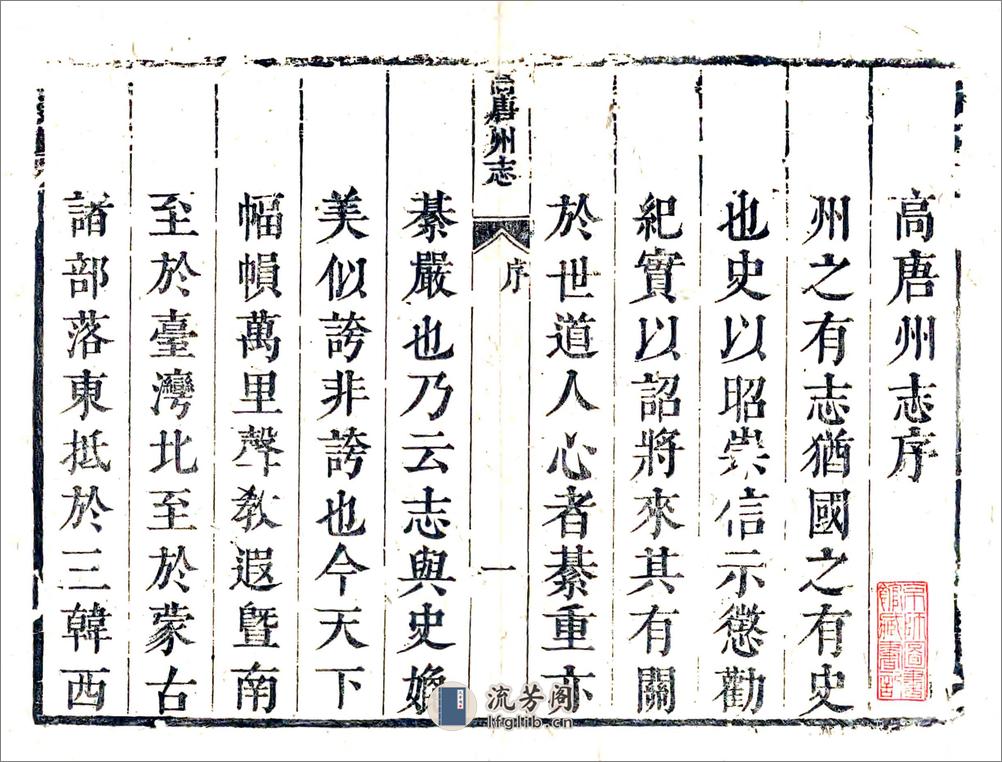 高唐州志序
州之有志猶國之有史
也史以昭崇信示懲勸
紀實以詔將來其有關
於世道人心者綦重亦
高唐州志 序 一
綦嚴也乃云志與史媲
美似誇非誇也今天下
幅幀萬里聲教遐暨南
至於臺灣北至於蒙古
諸部落東抵於三韓西
京師圖書
館藏書記
流芳阁
lfglib.cn